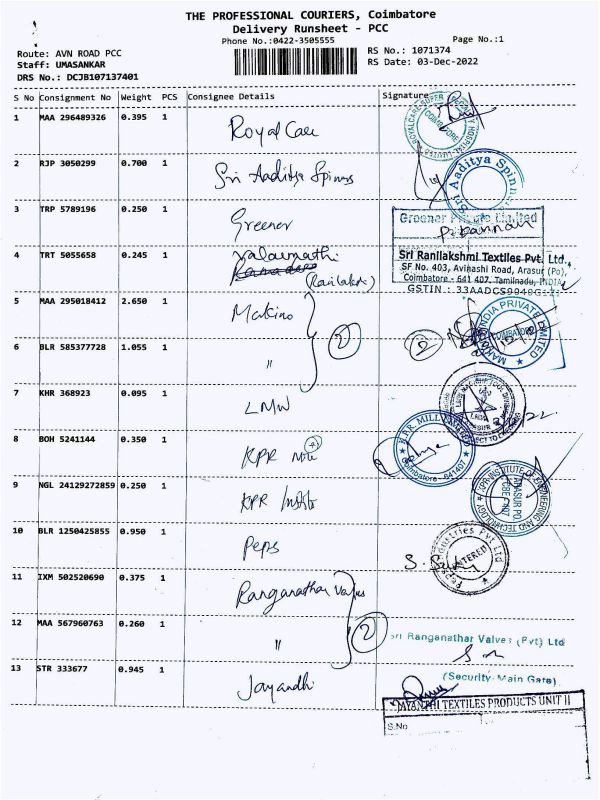 THE PROFESSIONAL COURIERS, Coimbatore
Delivery Runsheet - PCC
Phone No.:0422-3505555 Page No.:1
Route: AVN ROAD PCC RS No.: 1071374
Staff: UMASANKAR RS Date: 03-Dec-2022
DRS No.: DCJB107137401
S No Consignment No Weight PCS Consignee Details Signature
1 MAA 296489326 0.395 1 Royal Care
2 RJP 3050299 0.700 1 Sri Aaditya Spinns Sri Aaditya Spinn
3 TRP 5789196 0.250 1 Greener Greener Private Limited
P. Kannan
4 TRT 5055658 0.245 1 Sri Ranilakshmi Textiles Pvt. Ltd.,
SF No. 403, Avinashi Road, Arasur (Po),
Coimbatore - 641 407. Tamilnadu, INDIA
(Ranilakshmi)
GSTIN : 33AADCS
5 MAA 295018412 2.650 1 Makino INDIA PRIVATE LIMITED
2 2
6 BLR 585377728 1.055 1 "
7 KHR 368923 0.095 1 LMW
8 BOH 5241144 0.350 1 KPR Mill Coimbatore - 641407
9 NGL 24129272859 0.250 1 KPR Institute KPR INSTITUTE OF ENGINEERING AND TECHNOLOGY
ARASUR PO
10 BLR 1250425855 0.950 1 Peps
11 IXM 502520690 0.375 1 Ranganathar Valves
2
12 MAA 567960763 0.260 1 " Sri Ranganathar Valves (Pvt) Ltd
(Security-Main Gate)
13 STR 333677 0.945 1 Jayandhi
JAYANTHI TEXTILES PRODUCTS UNIT II
S.No